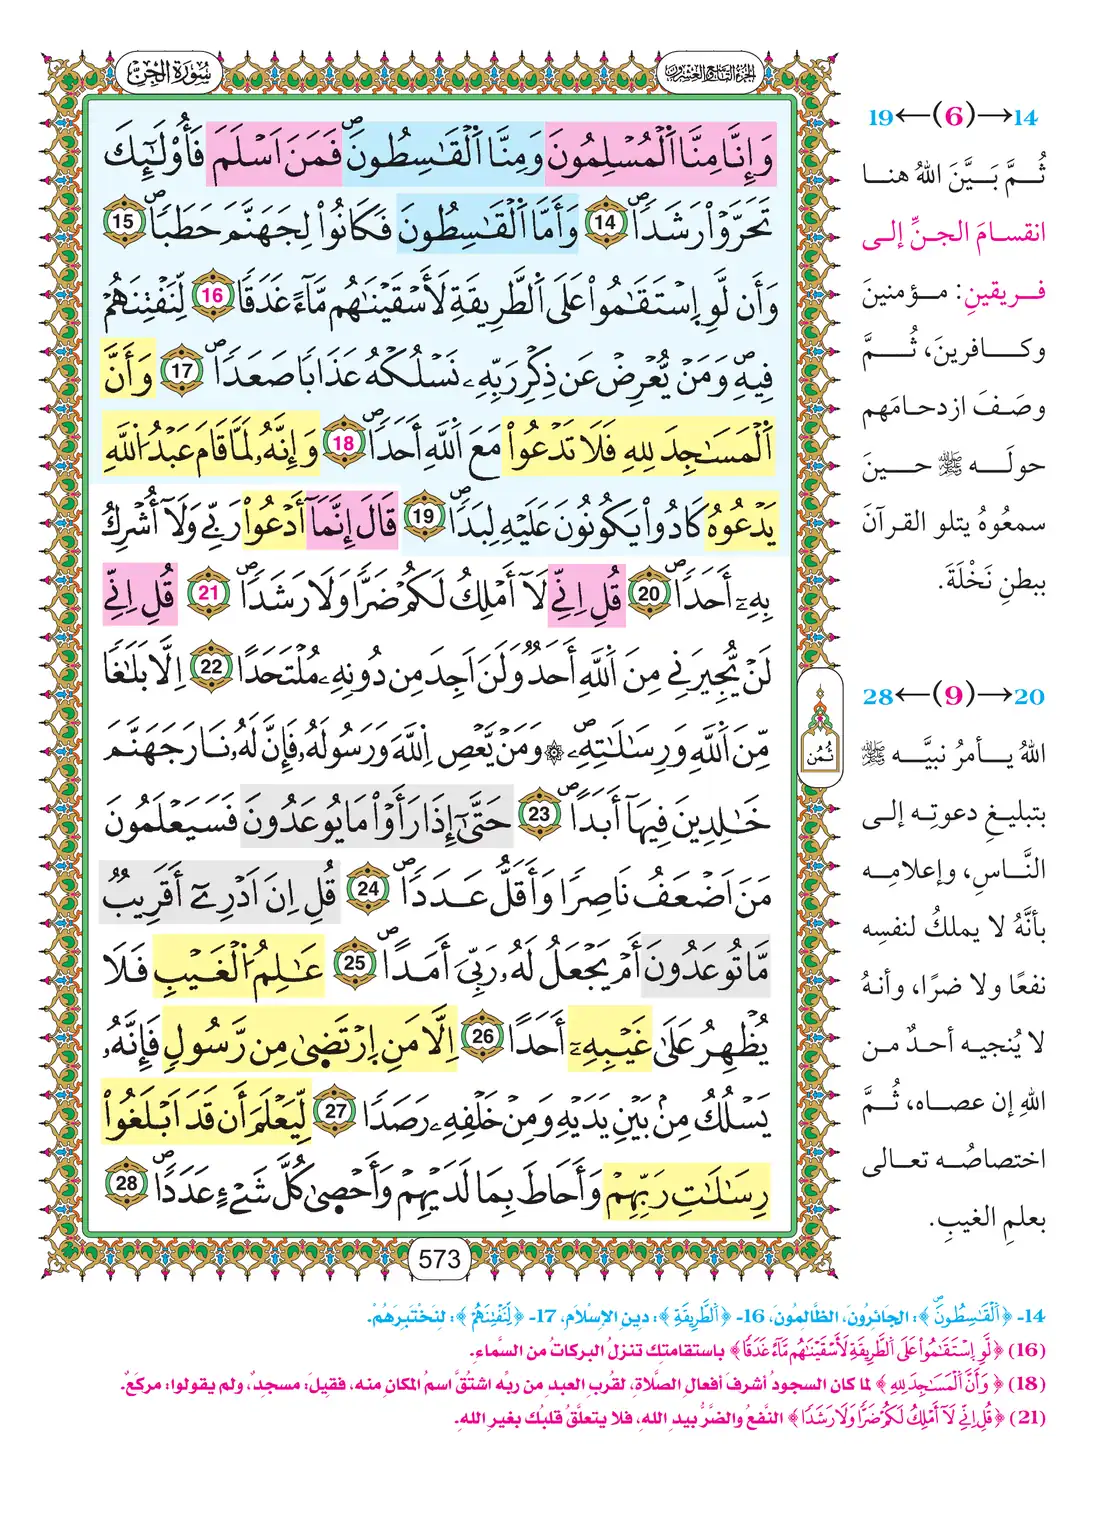 الجزء التاسع والعشرون
سُورَةُ الْجِنِّ
وَإِنَّا مِنَّا اَ۬لْمُسْلِمُونَ وَمِنَّا اَ۬لْقَٰسِطُونَۖ فَمَنَ اَسْلَمَ فَأُوْلَٰٓئِكَ
تَحَرَّوْاْ رَشَداٗۖ 14 وَأَمَّا اَ۬لْقَٰسِطُونَ فَكَانُواْ لِجَهَنَّمَ حَطَباٗۖ 15
وَأَن لَّوِ اِ۪سْتَقَٰمُواْ عَلَى اَ۬لطَّرِيقَةِ لَأَسْقَيْنَٰهُم مَّآءً غَدَقاٗ 16 لِّنَفْتِنَهُمْ
فِيهِۖ وَمَنْ يُّعْرِضْ عَن ذِكْرِ رَبِّهِۦ نَسْلُكْهُ عَذَاباٗ صَعَداٗۖ 17 وَأَنَّ
اَ۬لْمَسَٰجِدَ لِلهِ فَلَا تَدْعُواْ مَعَ اَ۬للَّهِ أَحَداٗۖ 18 وَإِنَّهُۥ لَمَّا قَامَ عَبْدُ اُ۬للَّهِ
يَدْعُوهُ كَادُواْ يَكُونُونَ عَلَيْهِ لِبَداٗۖ 19 قَالَ إِنَّمَآ أَدْعُواْ رَبِّے وَلَآ أُشْرِكُ
بِهِۦٓ أَحَداٗۖ 20 قُلِ اِنِّے لَآ أَمْلِكُ لَكُمْ ضَرّاٗ وَلَا رَشَداٗۖ 21 قُلِ اِنِّے
لَنْ يُّجِيرَنِے مِنَ اَ۬للَّهِ أَحَدٞ وَلَنَ اَجِدَ مِن دُونِهِۦ مُلْتَحَداً 22 اِلَّا بَلَٰغاٗ
مِّنَ اَ۬للَّهِ وَرِسَٰلَٰتِهِۦۖ ۞ وَمَنْ يَّعْصِ اِ۬للَّهَ وَرَسُولَهُۥ فَإِنَّ لَهُۥ نَارَ جَهَنَّمَ
خَٰلِدِينَ فِيهَآ أَبَداٗۖ 23 حَتَّىٰٓ إِذَا رَأَوْاْ مَا يُوعَدُونَ فَسَيَعْلَمُونَ
مَنَ اَضْعَفُ نَاصِراٗ وَأَقَلُّ عَدَداٗۖ 24 قُلِ اِنَ اَدْرِےٓ أَقَرِيبٞ
مَّا تُوعَدُونَ أَمْ يَجْعَلُ لَهُۥ رَبِّيَ أَمَداًۖ 25 عَٰلِمُ اُ۬لْغَيْبِ فَلَا
يُظْهِرُ عَلَىٰ غَيْبِهِۦٓ أَحَداً 26 اِلَّا مَنِ اِ۪رْتَضَىٰ مِن رَّسُولٖ فَإِنَّهُۥ
يَسْلُكُ مِنۢ بَيْنِ يَدَيْهِ وَمِنْ خَلْفِهِۦ رَصَداٗ 27 لِّيَعْلَمَ أَن قَدَ اَبْلَغُواْ
رِسَٰلَٰتِ رَبِّهِمْ وَأَحَاطَ بِمَا لَدَيْهِمْ وَأَحْصَىٰ كُلَّ شَےْءٍ عَدَداٗۖ 28
ثُمُن
573
14→(6)←19
ثُمَّ بَيَّنَ اللهُ هنا
انقسامَ الجنِّ إلى
فريقينِ: مؤمنينَ
وكافرينَ، ثُمَّ
وصَفَ ازدحامَهم
حولَه ﷺ حينَ
سمعُوهُ يتلو القرآنَ
ببطنِ نَخْلَةَ.
20→(9)←28
اللهُ يأمرُ نبيَّه ﷺ
بتبليغِ دعوتِه إلى
النَّاسِ، وإعلامِه
بأنَّهُ لا يملكُ لنفسِه
نفعًا ولا ضرًا، وأنهُ
لا يُنجيه أحدٌ من
اللهِ إن عصاه، ثُمَّ
اختصاصُه تعالى
بعلمِ الغيبِ.
14- ﴿اَ۬لْقَٰسِطُونَۖ﴾: الجَائِرُونَ، الظَّالِمُونَ، 16- ﴿اَ۬لطَّرِيقَةِ﴾: دِينِ الإِسْلَامِ، 17- ﴿لِّنَفْتِنَهُمْ﴾: لِنَخْتَبِرَهُمْ.
(16) ﴿لَّوِ اِ۪سْتَقَٰمُواْ عَلَى اَ۬لطَّرِيقَةِ لَأَسْقَيْنَٰهُم مَّآءً غَدَقاٗ﴾ باستقامتِك تنزلُ البركاتُ من السَّماءِ.
(18) ﴿وَأَنَّ اَ۬لْمَسَٰجِدَ لِلهِ﴾ لما كان السجودُ أشرفَ أفعالِ الصَّلاةِ، لقُربِ العبدِ من ربِّه اشتُقَّ اسمُ المكانِ منه، فقيلَ: مسجدٌ، ولم يقولوا: مركعٌ.
(21) ﴿قُلِ اِنِّے لَآ أَمْلِكُ لَكُمْ ضَرّاٗ وَلَا رَشَداٗ﴾ النَّفعُ والضَّرُّ بيدِ اللهِ، فلا يتعلَّقُ قلبُك بغيرِ اللهِ.